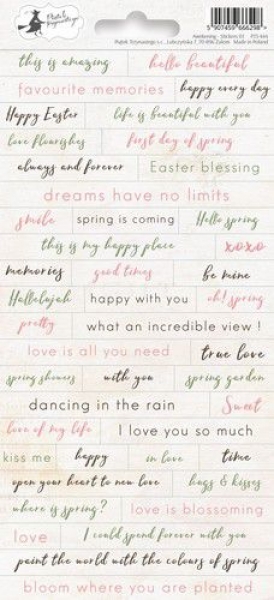 Piątek Trzynastego
5 907459 666298
Awakening - Stickers 01
Made in Poland
this is amazing hello beautiful
favourite memories happy every day
Happy Easter life is beautiful with you
love flourishes first day of spring
always and forever Easter blessing
dreams have no limits
smile spring is coming Hello spring
this is my happy place xoxo
memories good times be mine
Hallelujah happy with you oh! spring
pretty what an incredible view !
love is all you need true love
spring showers with you spring garden
dancing in the rain Sweet
love of my life I love you so much
kiss me happy in love time
open your heart to new love hugs & kisses
where is spring? love is blossoming
love I could spend forever with you
paint the world with the colours of spring
bloom where you are planted